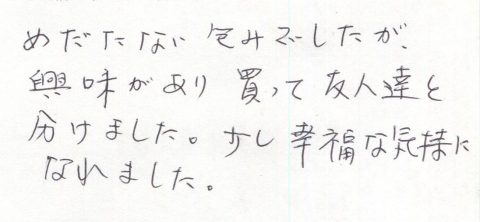 めだたない包みでしたが、
興味があり買って友人達と
分けました。少し幸福な気持に
なれました。